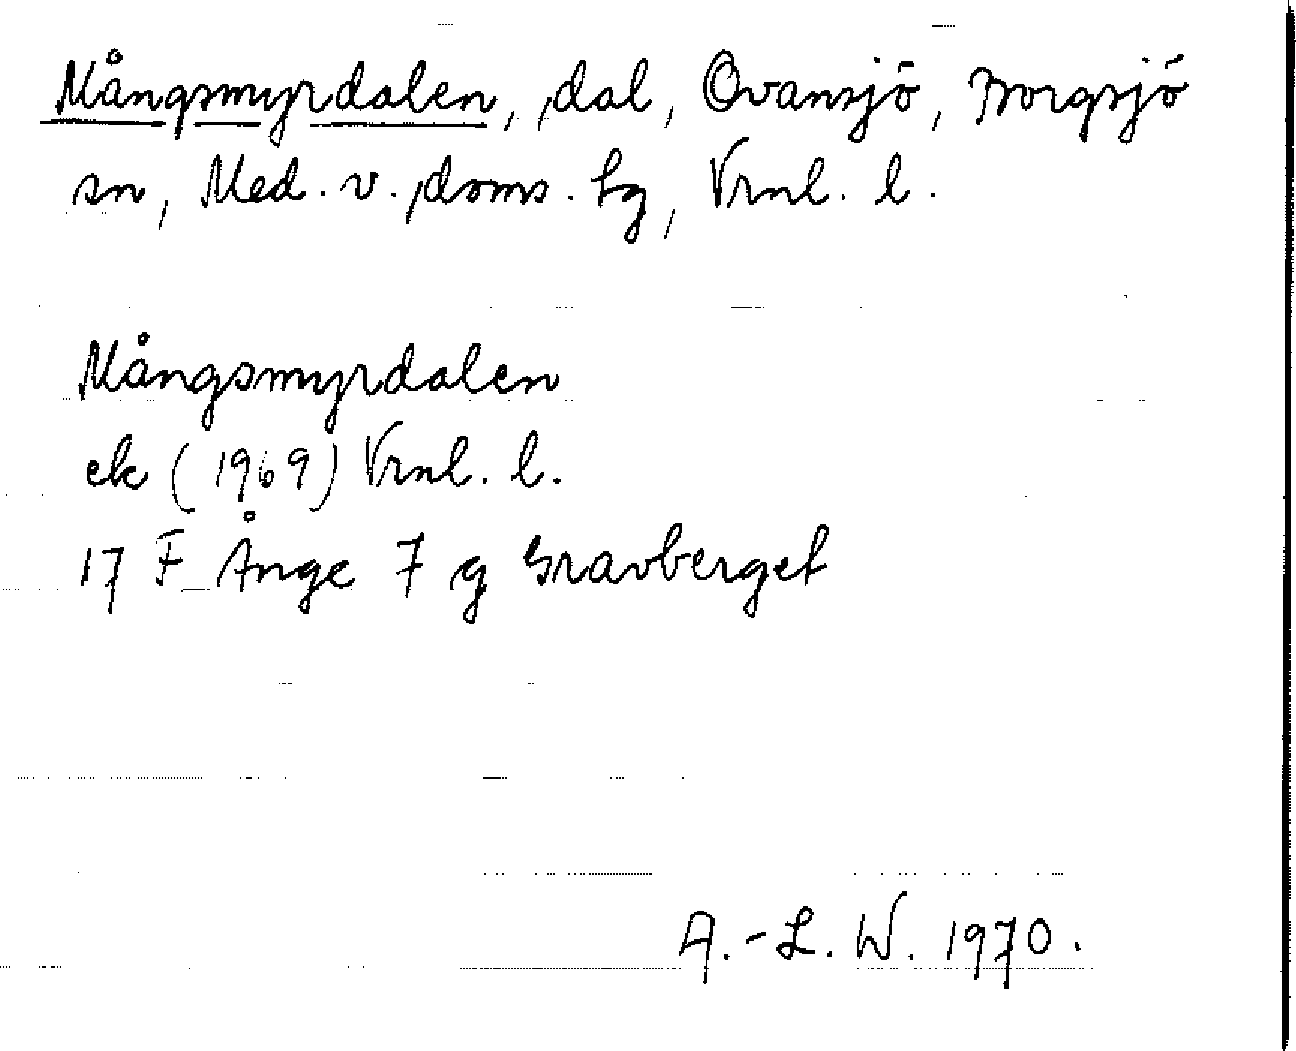 Mångsmyrdalen, dal, Ovansjö, Borgsjö
sn, Med. v. doms. tg, Vrnl. l.
Mångsmyrdalen
ek (1969) Vrnl. l.
17 F Ånge 7 g Gravberget
A.-L. W. 1970.